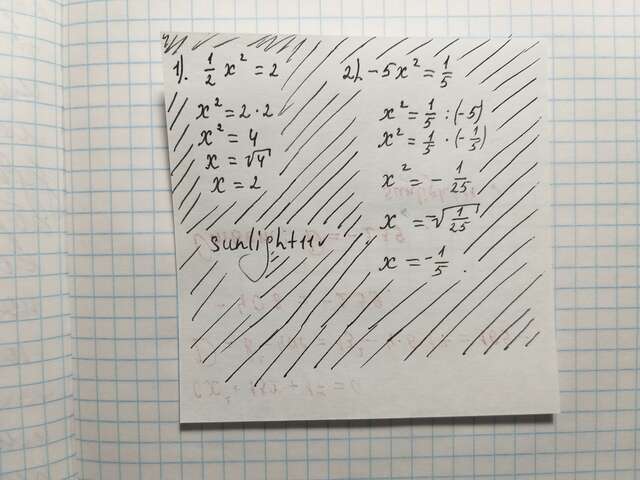 1). 1/2 x² = 2
x² = 2 · 2
x² = 4
x = √4
x = 2
sunlight11
2). - 5x² = 1/5
x² = 1/5 : (-5)
x² = 1/5 · (-1/5)
x² = - 1/25
x = -√1/25
x = - 1/5